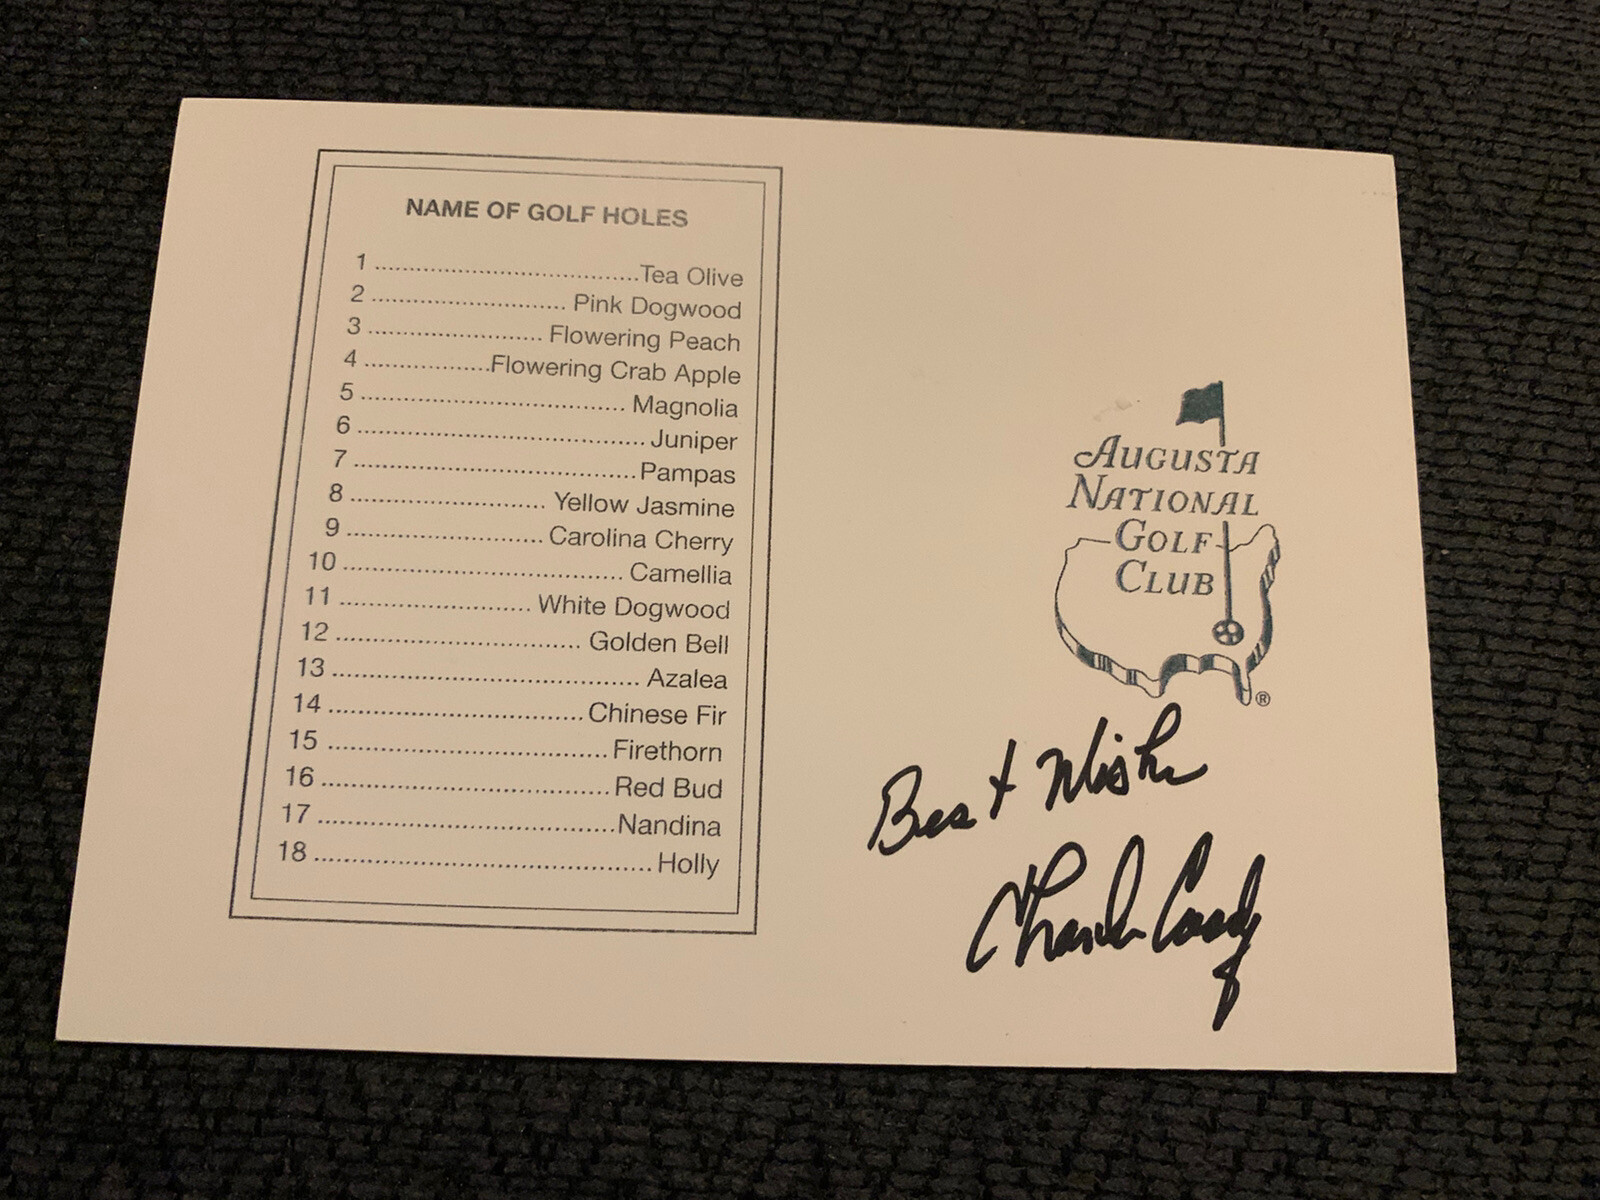 NAME OF GOLF HOLES
1 ..................................... Tea Olive
2 ........................... Pink Dogwood
3 ........................ Flowering Peach
4 .................. Flowering Crab Apple
5 ..................................... Magnolia
6 ........................................ Juniper
7 ....................................... Pampas
8 ........................... Yellow Jasmine
9 ........................... Carolina Cherry
10 ....................................... Camellia
11 .......................... White Dogwood
12 .................................. Golden Bell
13 .......................................... Azalea
14 ................................... Chinese Fir
15 ...................................... Firethorn
16 ....................................... Red Bud
17 ......................................... Nandina
18 .............................................. Holly
AUGUSTA
NATIONAL
GOLF
CLUB
®
Best Wishes
Charles Coody